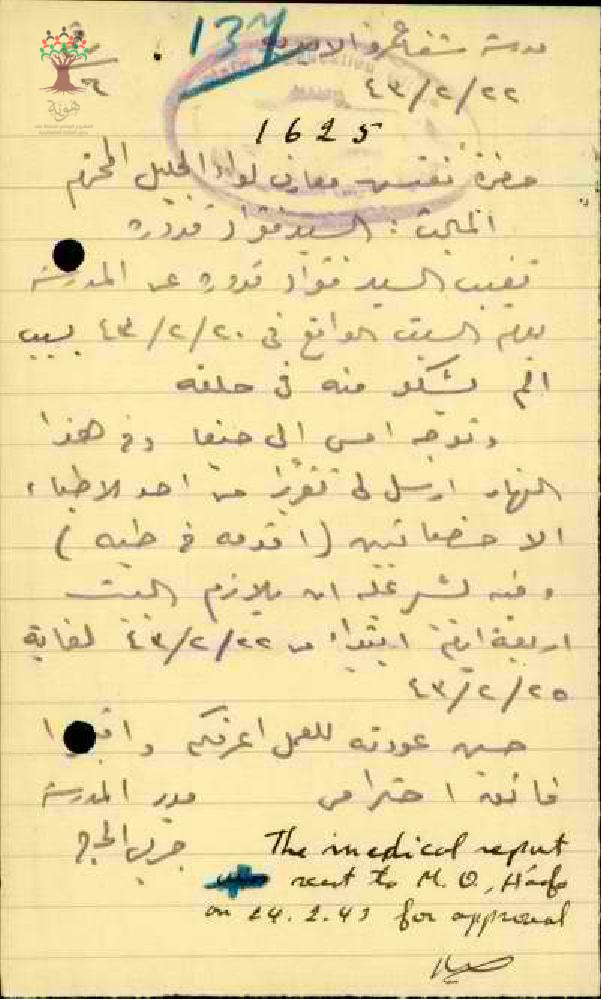 137
مدرسة شفا عمرو الاميرية
٤٣/٢/٢٢
1625
حضرة مفتش معارف لواء الجليل المحترم
المبحث : السيد فؤاد قدوره
تغيب السيد فؤاد قدوره عن المدرسة
يوم السبت الواقع في ٤٣/٢/٢٠ بسبب
الم يشكو منه في حلقه
وتوجه امس الى حيفا وفي هذا
النهار ارسل لي تقريرا من احد الاطباء
الاخصائيين (اقدمه في طيه)
وفيه يشير عليه ان يلازم البيت
اربعة ايام ابتداء من ٤٣/٢/٢٢ لغاية
٤٣/٢/٢٥
حين عودته للعمل اعرفكم واقبلوا
فائق احترامي
مدير المدرسة
The medical report
sent to M.O., Haifa
on 24.2.43 for approval
هوية